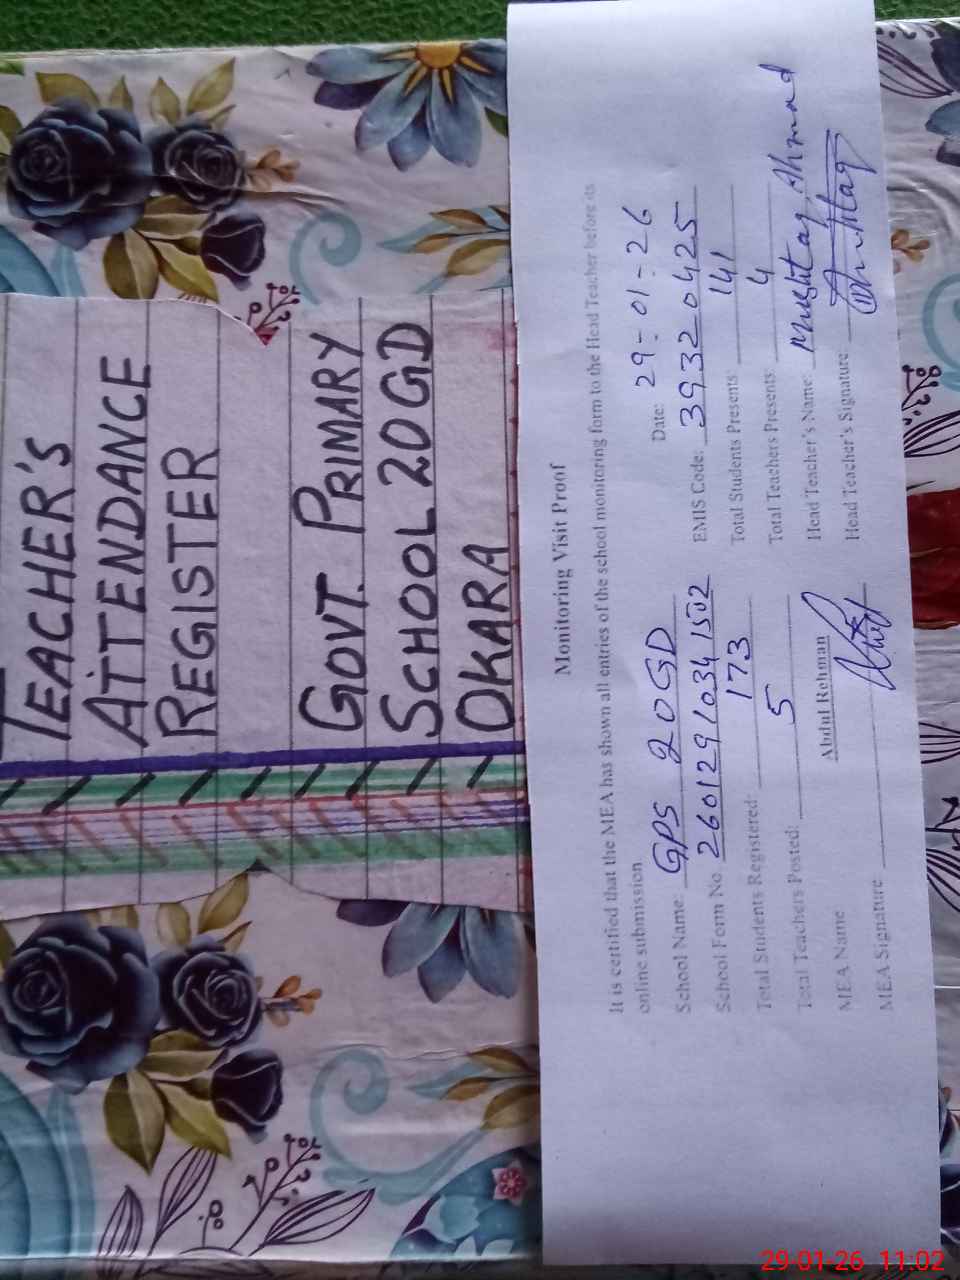 TEACHER'S
ATTENDANCE
REGISTER
GOVT. PRIMARY
SCHOOL 20GD
OKARA
Monitoring Visit Proof
It is certified that the MEA has shown all entries of the school monitoring form to the Head Teacher before its
online submission
Date: 29-01-26
School Name: GPS 20GD EMIS Code: 39320425
School Form No 26012910341502 Total Students Presents: 141
Total Students Registered: 173 Total Teachers Presents: 4
Total Teachers Posted: 5 Head Teacher's Name: Mushtaq Ahmad
MEA Name Abdul Rehman Head Teacher's Signature
MEA Signature
29-01-26 11:02